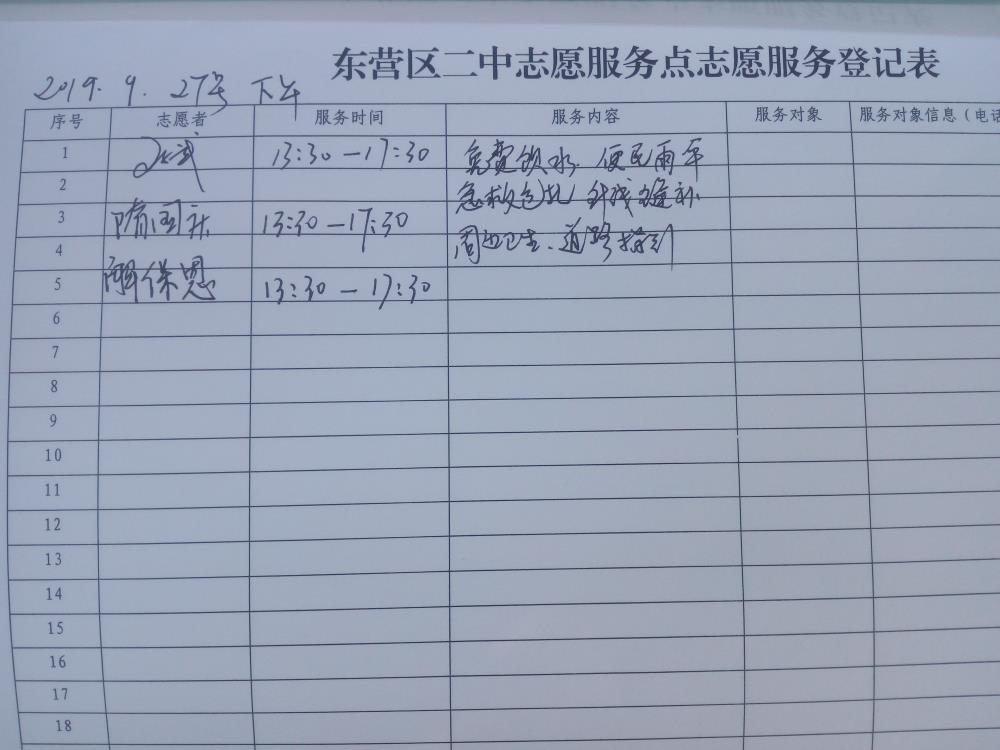 东营区二中志愿服务点志愿服务登记表
2019. 9. 27号 下午
序号 志愿者 服务时间 服务内容 服务对象 服务对象信息（电话
1 13:30—17:30 免费饮水. 便民雨伞
2 急救包 针线缝补
3 隋国 13:30—17:30
4 周边卫生、道路指引
5 保恩 13:30—17:30
6
7
8
9
10
11
12
13
14
15
16
17
18